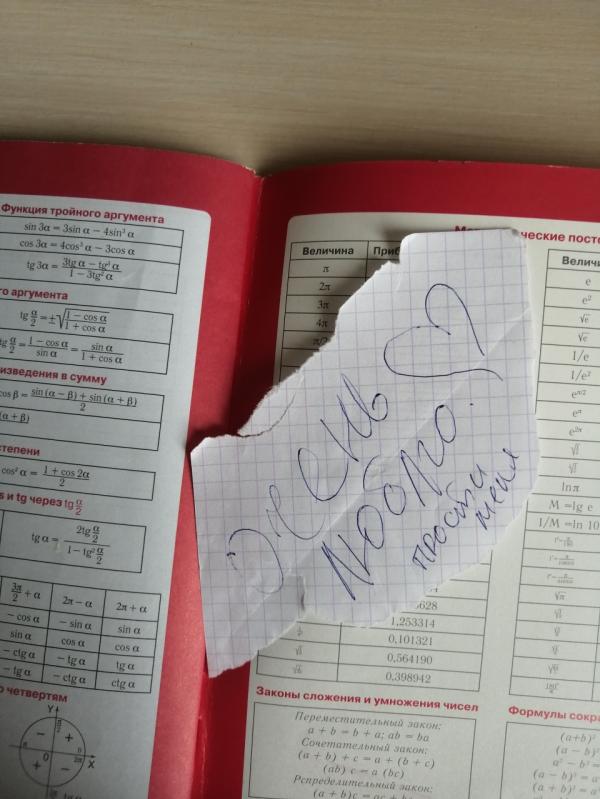 Функция тройного аргумента
sin 3α = 3sin α − 4sin³ α
cos 3α = 4cos³ α − 3cos α
tg 3α = (3tg α − tg³ α) / (1 − 3tg² α)
аргумента
tg α/2 = ±√((1 − cos α) / (1 + cos α))
tg α/2 = (1 − cos α) / sin α = sin α / (1 + cos α)
в сумму
cos β = (sin (α − β) + sin (α + β)) / 2
cos² α = (1 + cos 2α) / 2
и tg через tg α/2
tg α = 2tg α/2 / (1 − tg² α/2)
3π/2 + α 2π − α 2π + α
− cos α − sin α sin α
sin α cos α cos α
− ctg α − tg α tg α
− tg α − ctg α ctg α
четвертям
Y
− +
0 X
+ −
Величина
π
2π
3π
4π
π/2
Очень
люблю!
прости
меня
1,253314
0,101321
0,564190
0,398942
e
e²
√e
1/e
1/e²
e^π/2
e^π
e^2π
lnπ
M =lg e
1/M =ln 10
Законы сложения и умножения чисел
Переместительный закон:
a + b = b + a; ab = ba
Сочетательный закон:
(a + b) + c = a + (b + c)
(ab) c = a (bc)
Рспределительный закон:
Формулы
(a + b)²
(a − b)²
a² − b² =
(a − b)³ =
(a + b)³ =